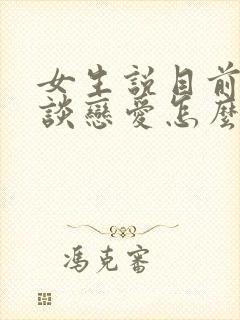 女生説目前
談戀愛怎麼
馮克審